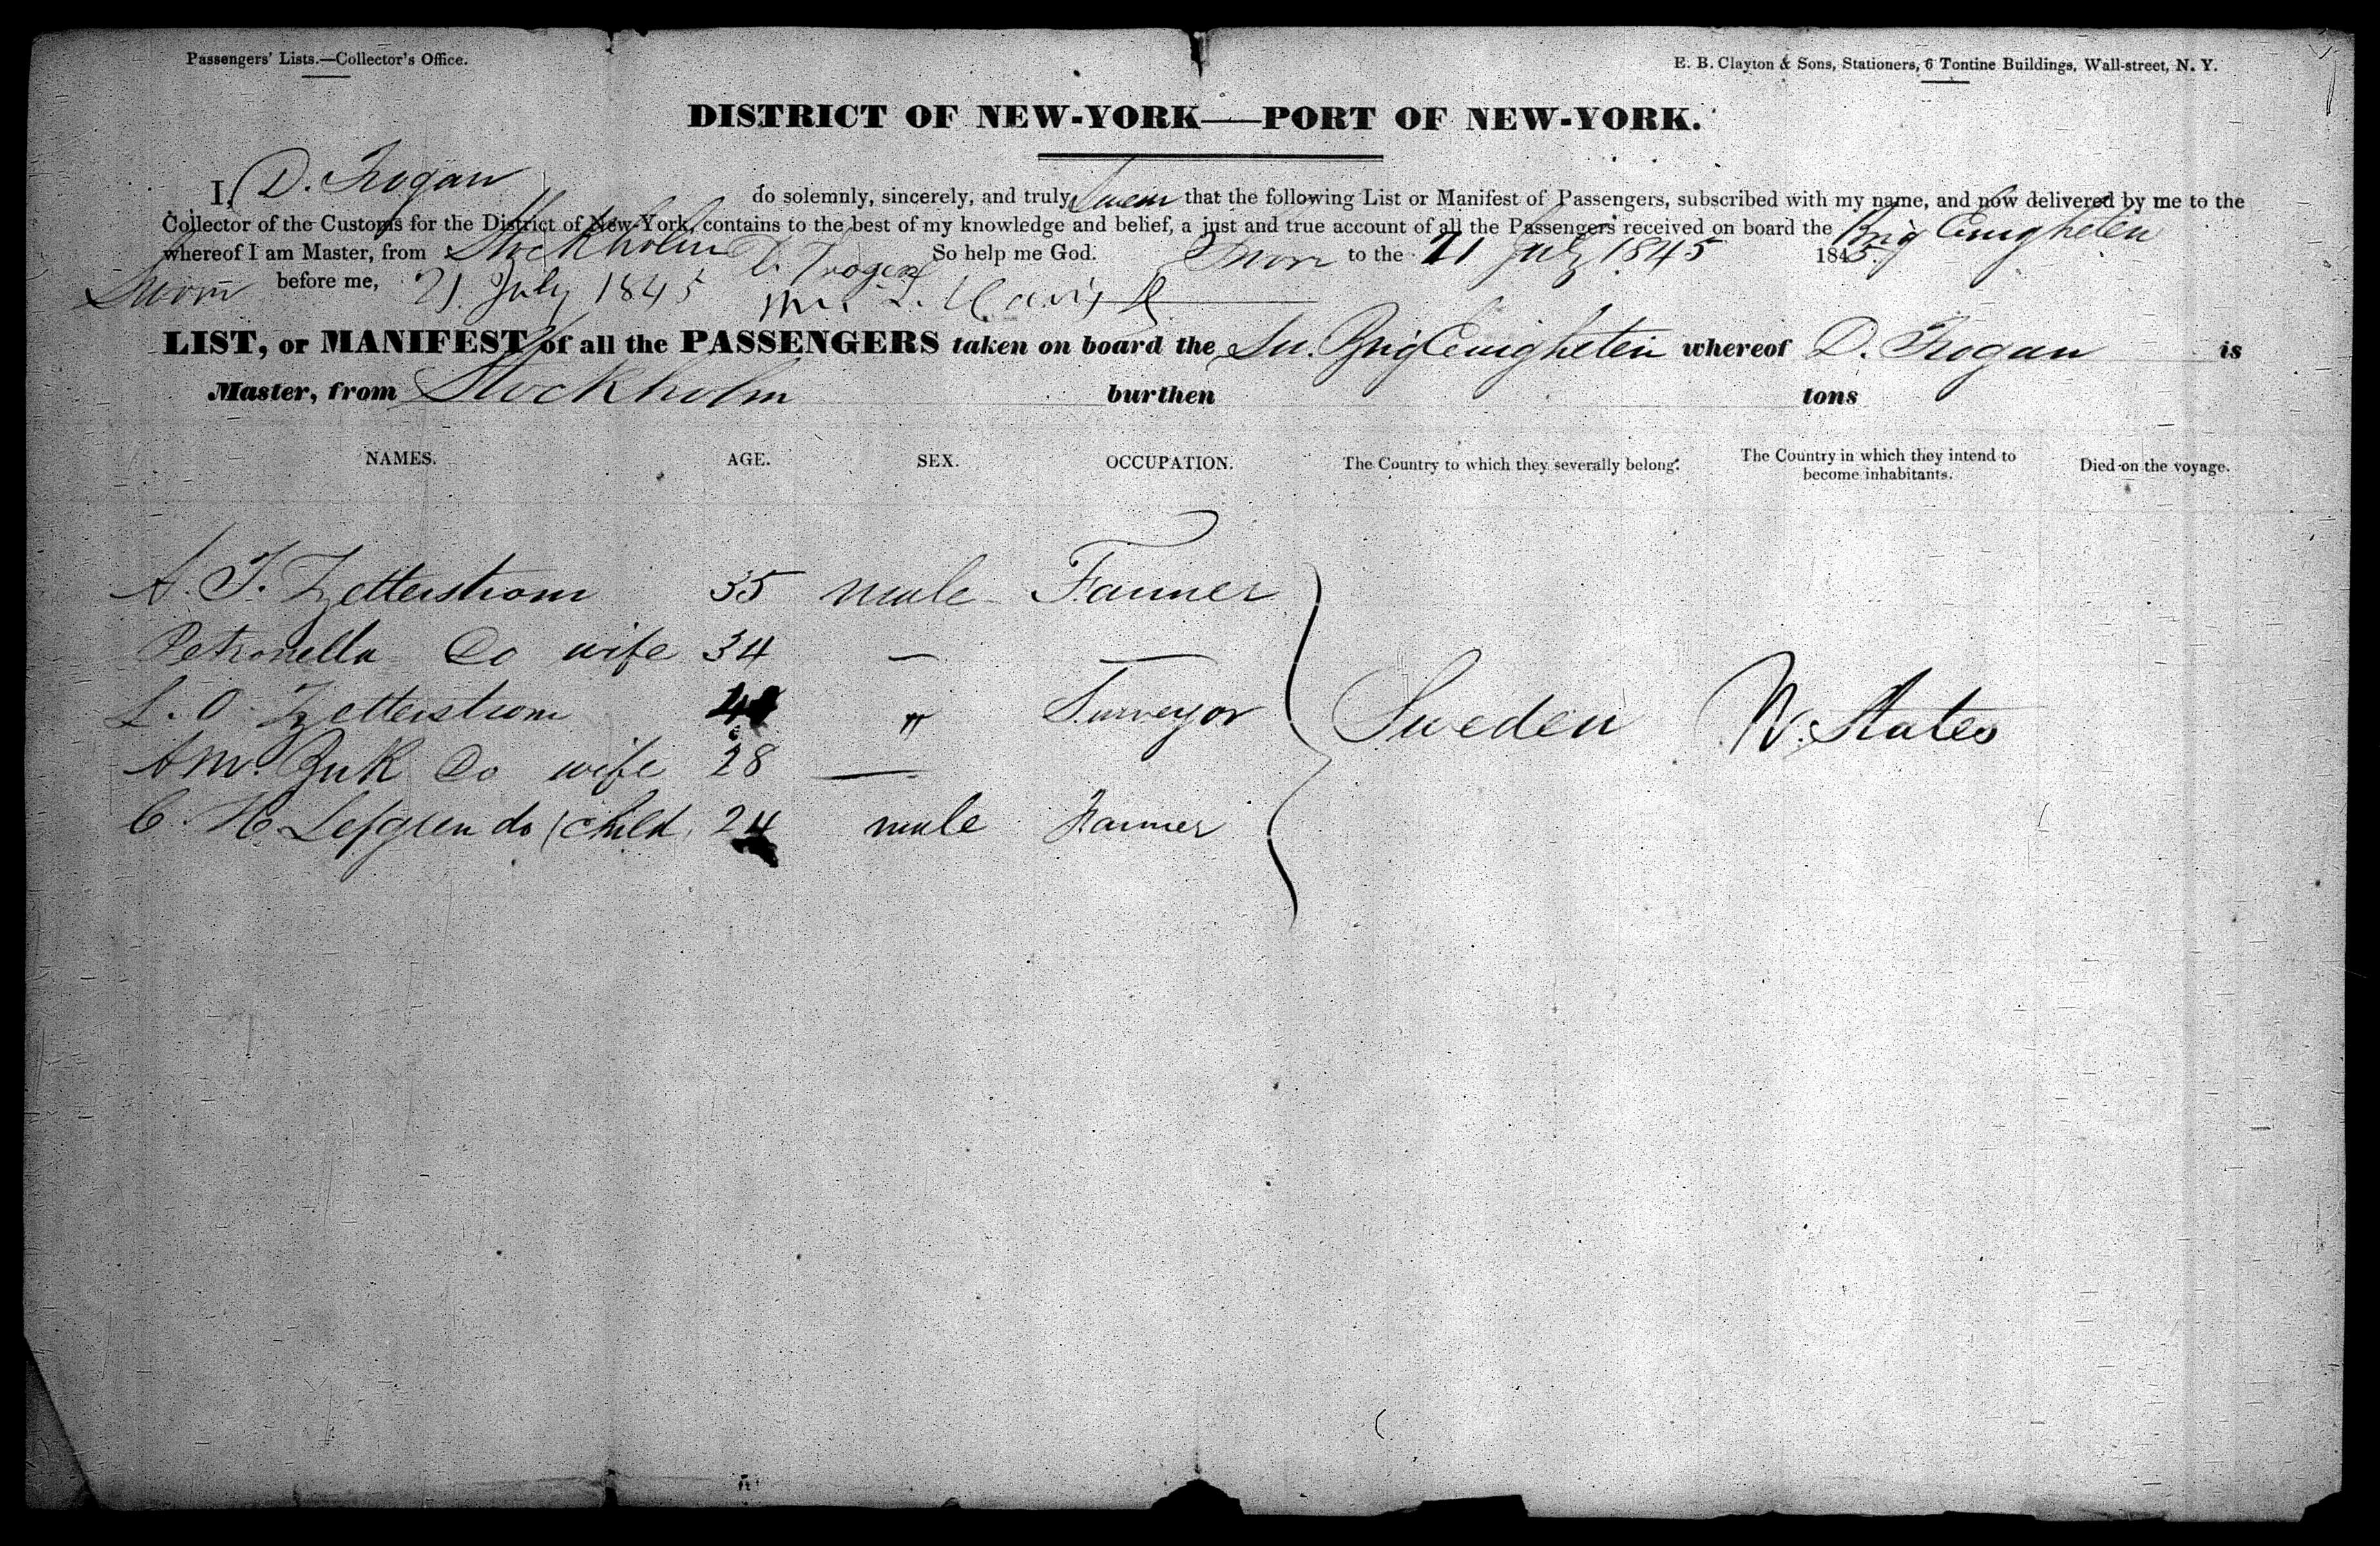 Passengers' Lists.—Collector's Office.
E. B. Clayton & Sons, Stationers, 6 Tontine Buildings, Wall-street, N. Y.
DISTRICT OF NEW-YORK—PORT OF NEW-YORK.
I, D. Trogan do solemnly, sincerely, and truly Swear that the following List or Manifest of Passengers, subscribed with my name, and now delivered by me to the
Collector of the Customs for the District of New-York, contains to the best of my knowledge and belief, a just and true account of all the Passengers received on board the Brig Enigheten
whereof I am Master, from Stockholm So help me God. Sworn to the 21 July 1845 1845.
Sworn before me, 21 July 1845 D. Trogen
LIST, or MANIFEST of all the PASSENGERS taken on board the Sw. Brig Enigheten whereof D. Trogan is
Master, from Stockholm burthen tons
NAMES. AGE. SEX. OCCUPATION. The Country to which they severally belong. The Country in which they intend to become inhabitants. Died on the voyage.
A. J. Zetterstrom 35 male Farmer
Petronella Do wife 34 — —
L. O. Zetterstrom " Surveyor Sweden U. States
Do wife 28 —
C. H. Lefgren do (child 24 male Farmer